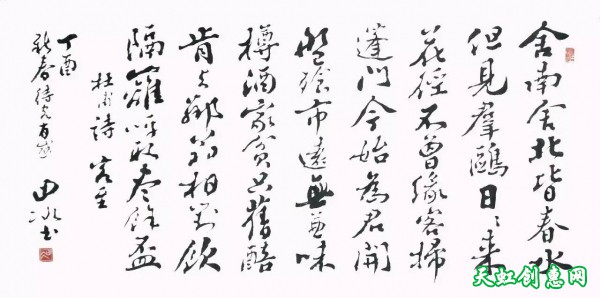 舍南舍北皆春水
但見羣鷗日〻來
花徑不曾緣客掃
蓬門今始為君開
盤飧市遠無兼味
樽酒家貧只舊醅
肯与鄰翁相對飲
隔籬呼取尽餘盃
杜甫詩 客至
丁酉
新春
田冰书
天虹创惠网